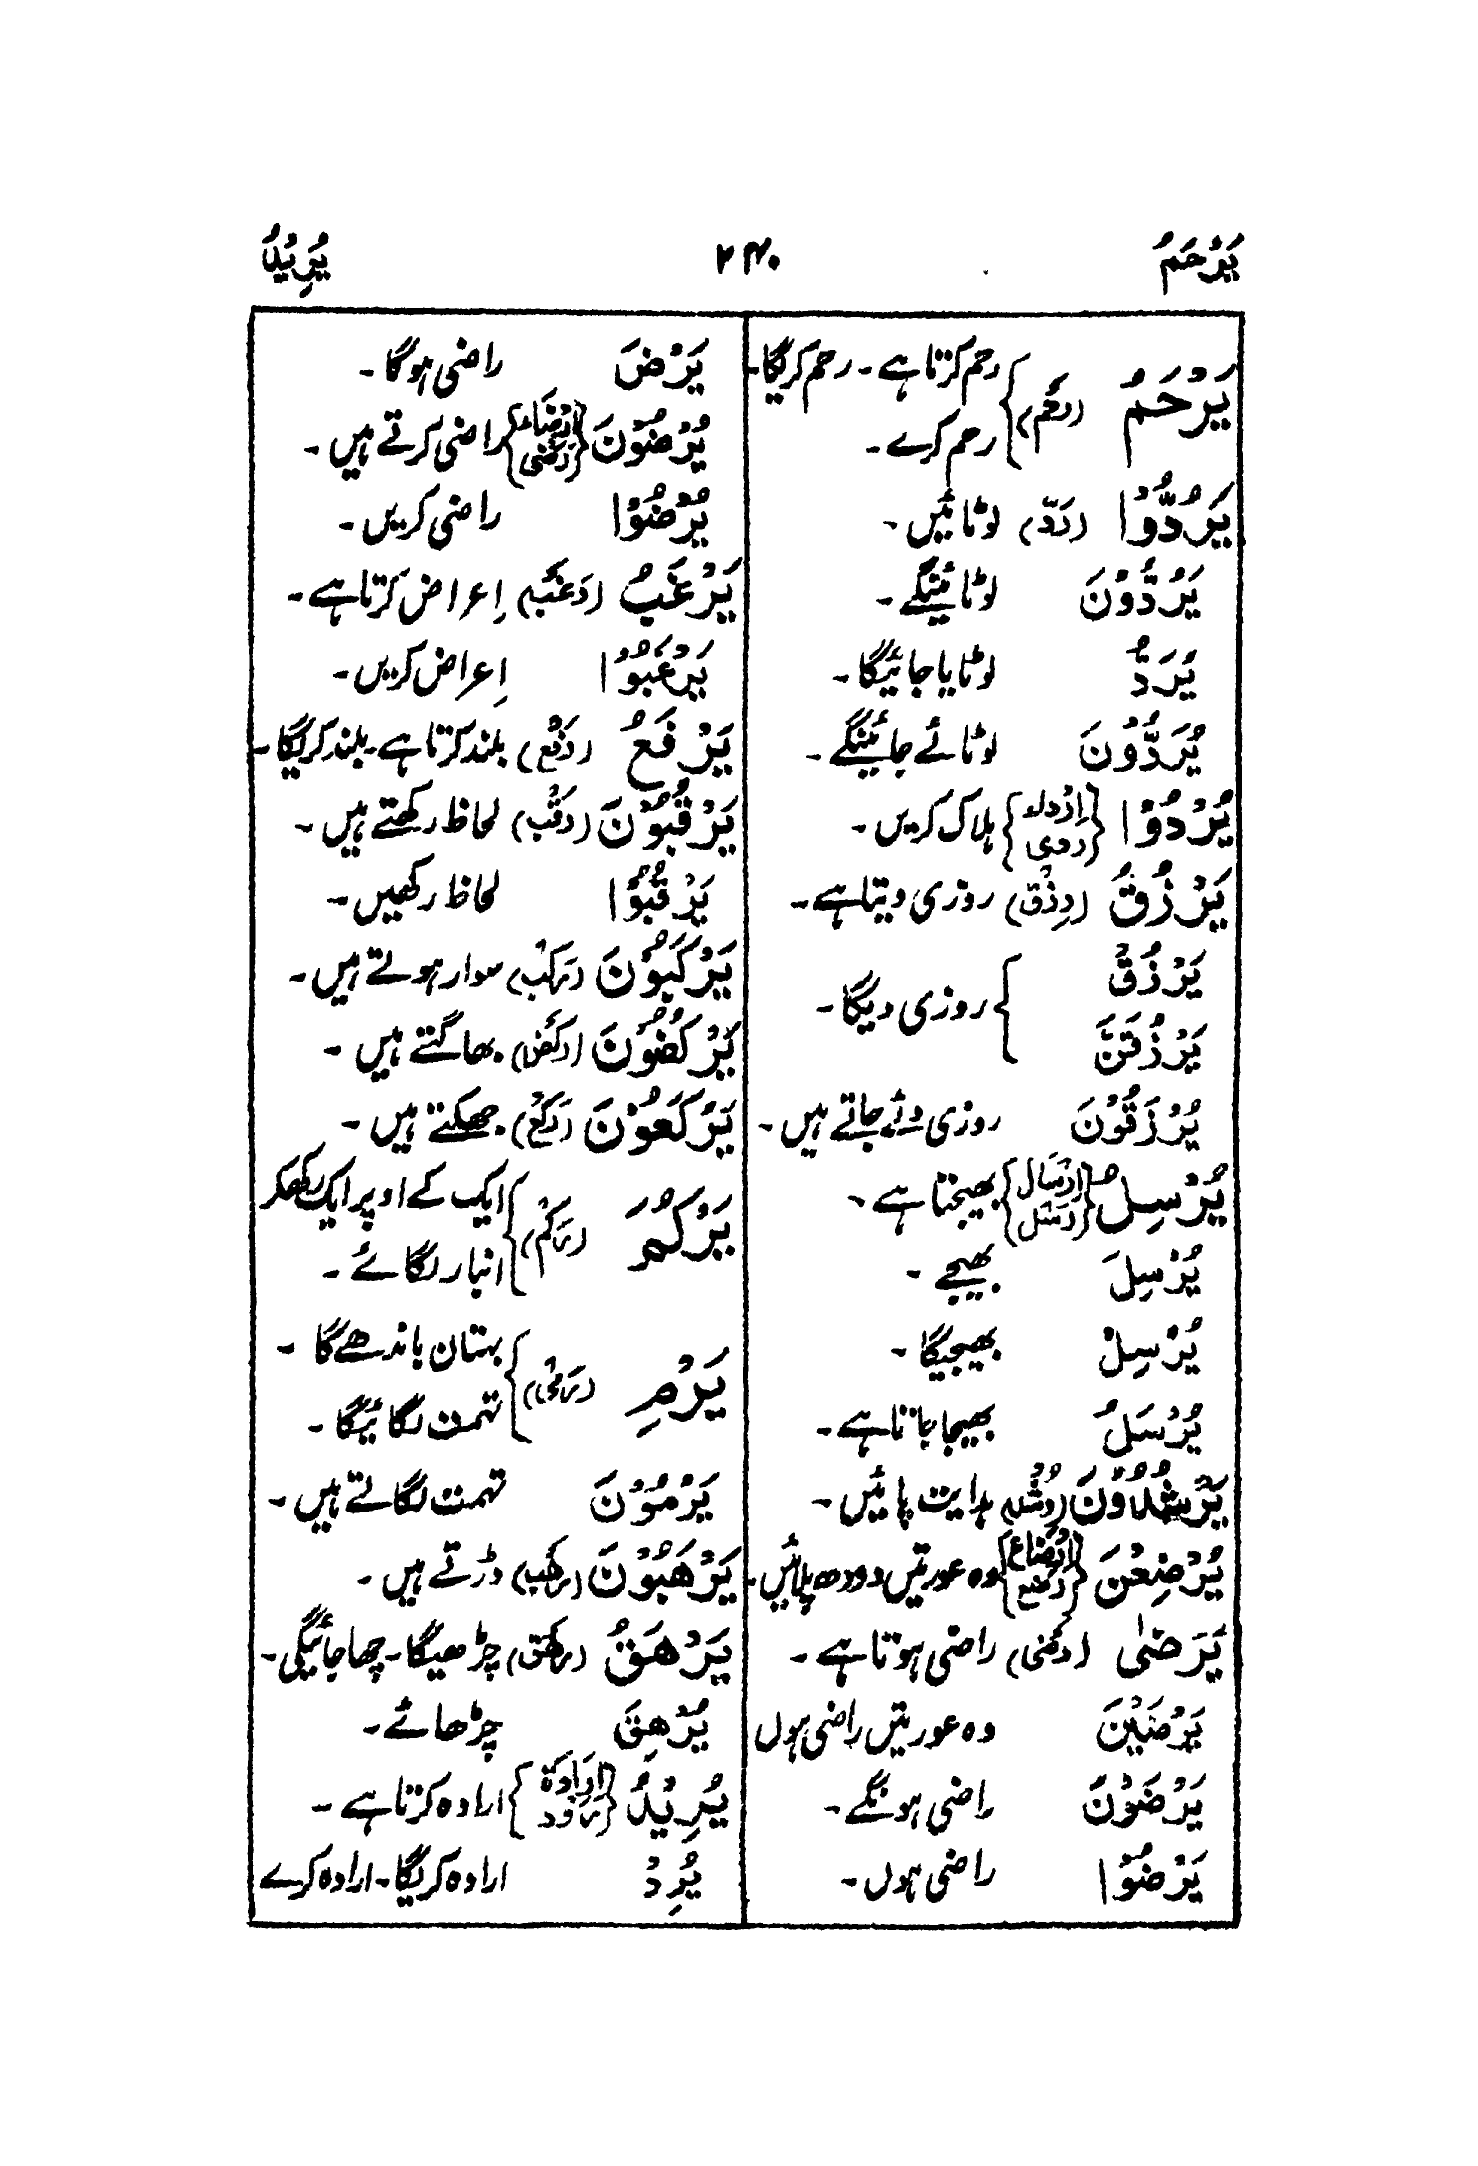 یَرْحَمُ ۲۴۰ یُرِیْدُ
یَرْحَمُ (رَحْم) رحم کرتا ہے ۔ رحم کریگا ۔
رحم کرے ۔
یَرُدُّوْا (رَدّ) لوٹائیں ۔
یَرُدُّوْنَ لوٹائینگے ۔
یُرَدُّ لوٹایا جائیگا ۔
یُرَدُّوْنَ لوٹائے جائینگے ۔
یُرْدُوْا {اِرْدَاء ردی} ہلاک کریں ۔
یَرْزُقُ (رِزْق) روزی دیتا ہے ۔
یَرْزُقَ
یَرْزُقَنَّ } روزی دیگا ۔
یُرْزَقُوْنَ روزی دئے جاتے ہیں ۔
یُرْسِلُ {اِرْسَال رسل} بھیجتا ہے ۔
یُرْسِلَ بھیجے ۔
یُرْسِلْ بھیجیگا ۔
یُرْسَلُ بھیجا جاتا ہے ۔
یَرْشُدُوْنَ (رُشْد) ہدایت پائیں ۔
یُرْضِعْنَ {اِرْضَاع رضع} وہ عورتیں دودھ پلائیں ۔
یَرْضٰی (رضی) راضی ہوتا ہے ۔
یَرْضَیْنَ وہ عورتیں راضی ہوں
یَرْضَوْنَ راضی ہونگے ۔
یَرْضَوْا راضی ہوں ۔
یَرْضَ راضی ہوگا ۔
یُرْضُوْنَ {اِرْضَاء رضی} راضی کرتے ہیں ۔
یُرْضُوْا راضی کریں ۔
یَرْغَبُ (رَغْب) اِعراض کرتا ہے ۔
یَرْغَبُوْا اِعراض کریں ۔
یَرْفَعُ (رَفْع) بلند کرتا ہے ۔ بلند کریگا ۔
یَرْقُبُوْنَ (رَقْب) لحاظ رکھتے ہیں ۔
یَرْقُبُوْا لحاظ رکھیں ۔
یَرْكَبُوْنَ (رکب) سوار ہوتے ہیں ۔
یَرْكُضُوْنَ (رَکْض) بھاگتے ہیں ۔
یَرْكَعُوْنَ (رَکْع) جھکتے ہیں ۔
یَرْكُمَ (رَکْم) ایک کے اوپر ایک رکھکر
انبار لگائے ۔
یَرْمِ (رَمْی) بہتان باندھے گا ۔
تہمت لگائیگا ۔
یَرْمُوْنَ تہمت لگاتے ہیں ۔
یَرْهَبُوْنَ (رهب) ڈرتے ہیں ۔
یَرْهَقُ (رهق) چڑھیگا ۔ چھا جائیگی ۔
یُرْهِقَ چڑھائے ۔
یُرِیْدُ {اِرَادَة رود} ارادہ کرتا ہے ۔
یُرِدْ ارادہ کریگا ۔ ارادہ کرے